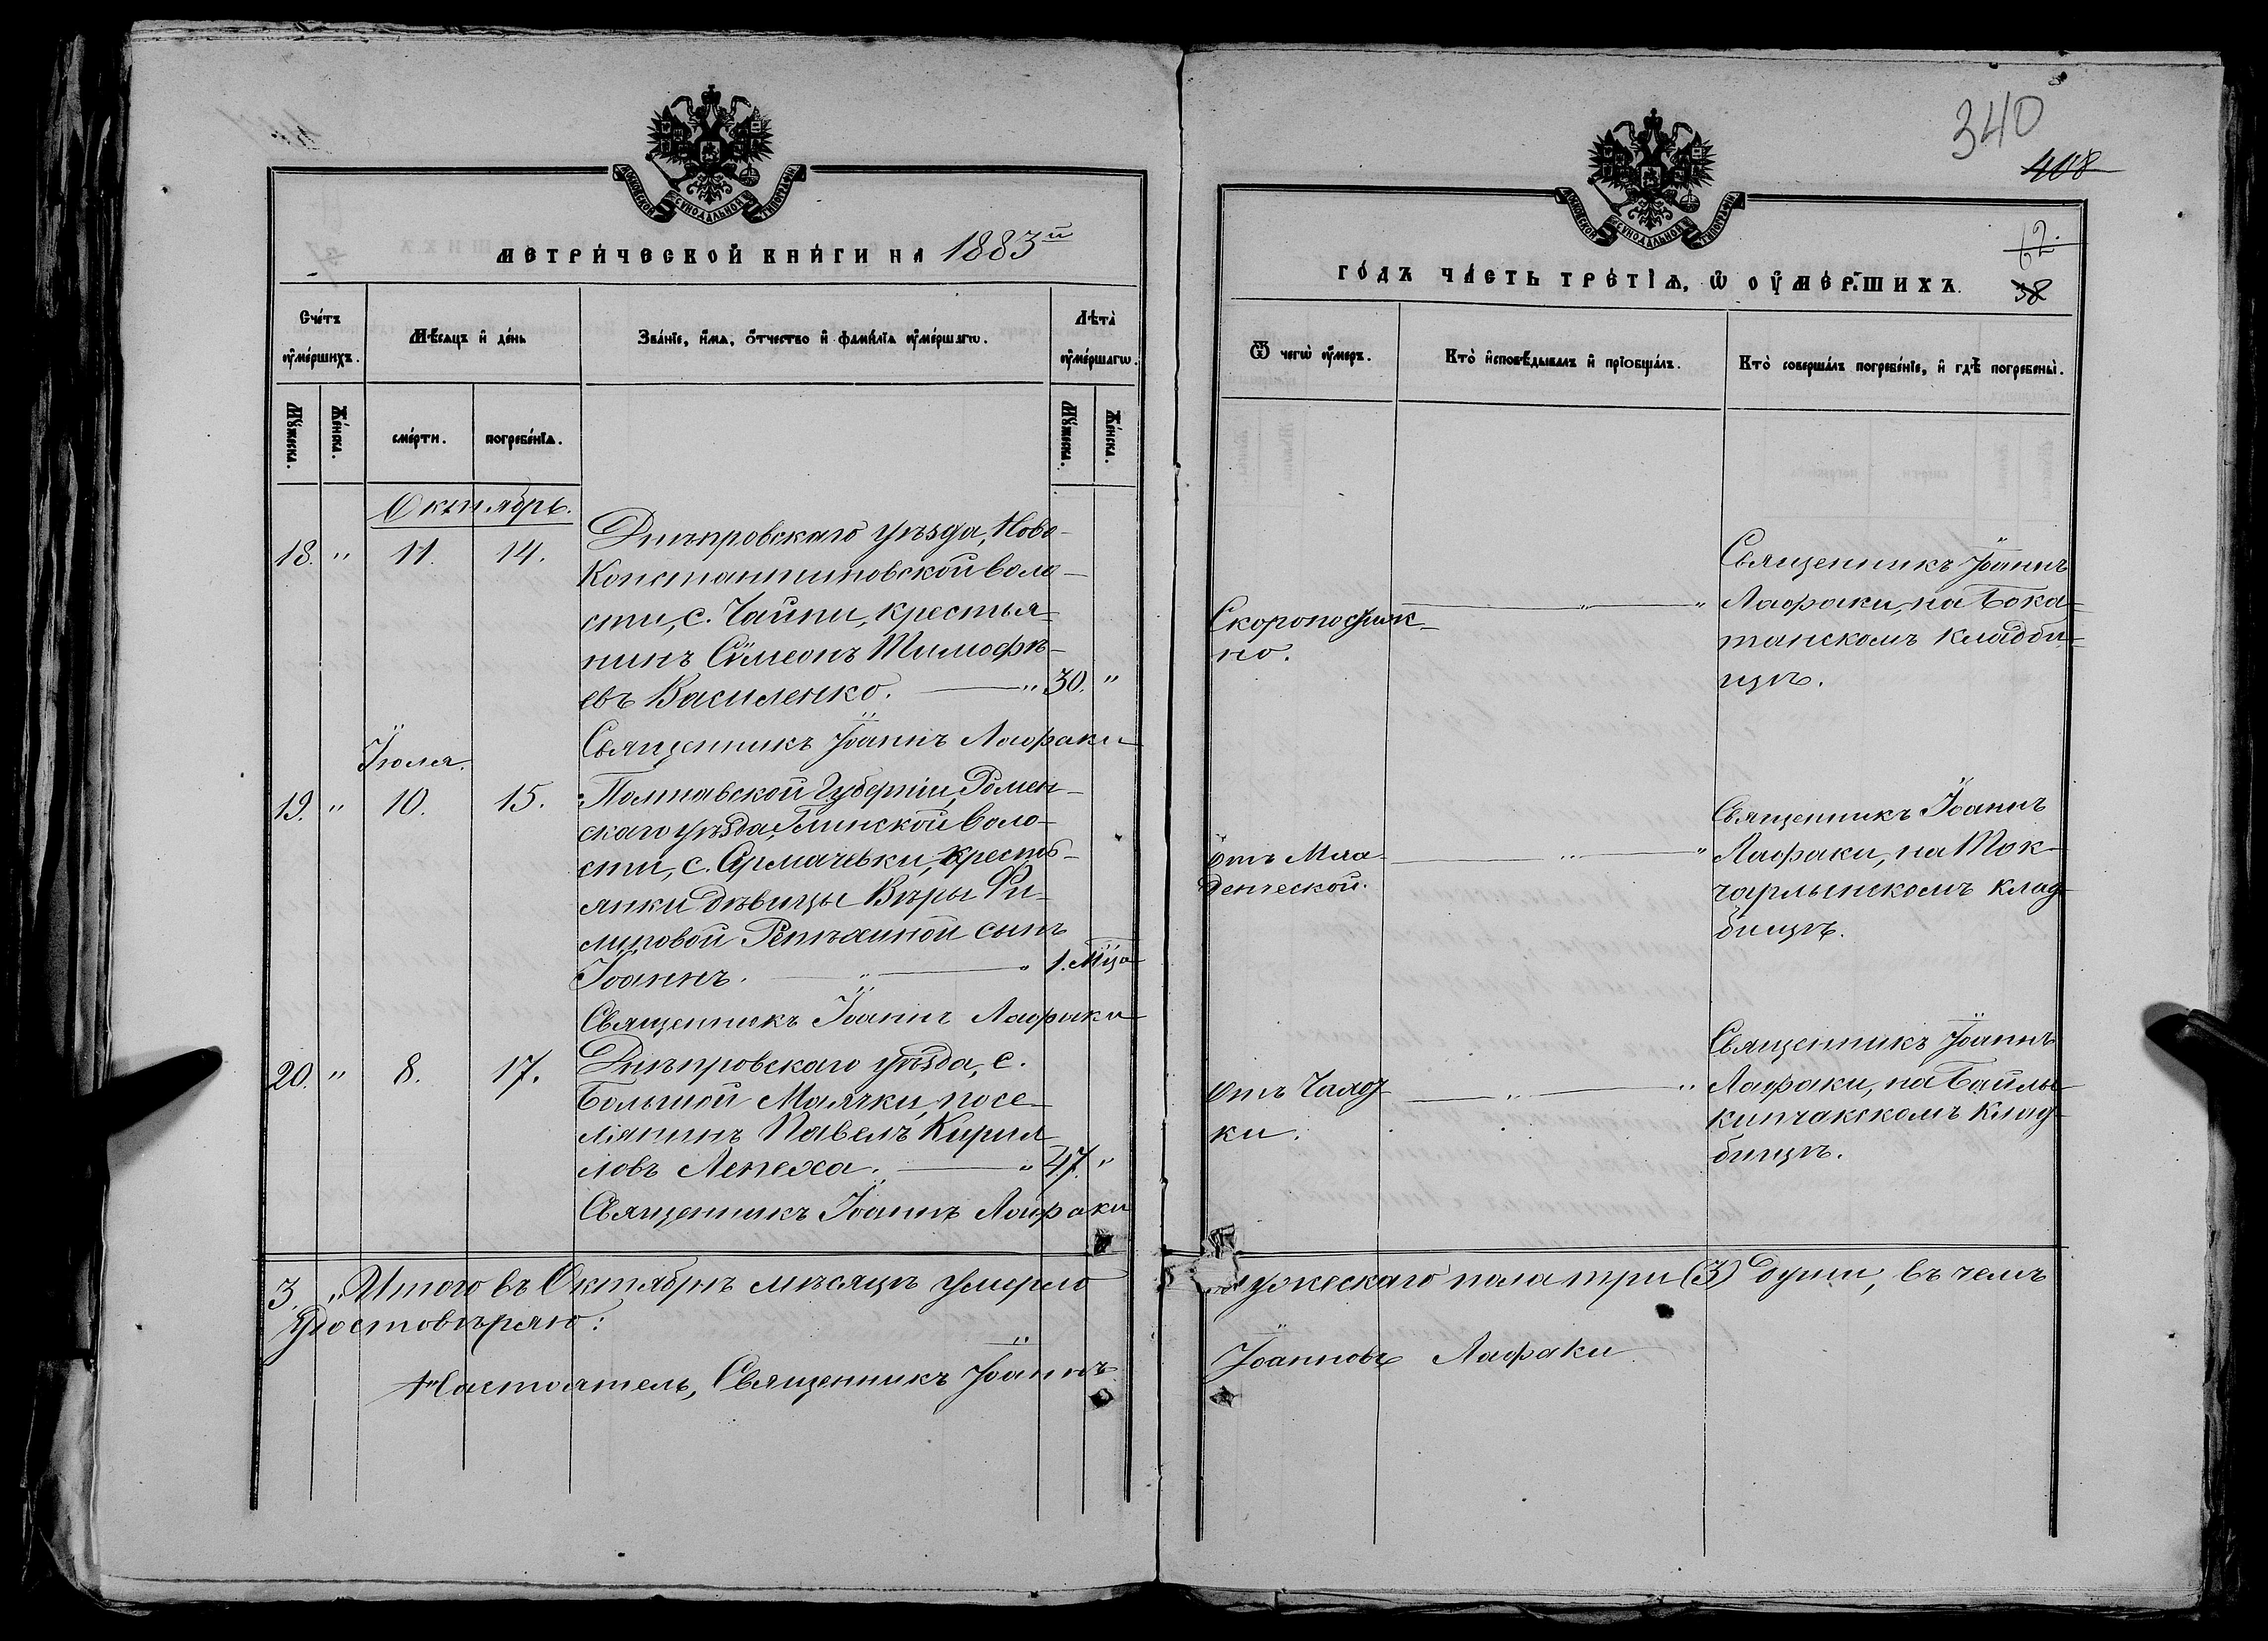 МОСКОВСКОЙ СѴНОДАЛЬНОЙ ТИПОГРАФІИ
МЕТРИ́ЧЕСКОЙ КНИ́ГИ НА 1883й
Сче́тъ ᲂу҆ме́ршихъ.
Мѣ́сяцъ и҆ де́нь
Зва́нїе, и҆́мѧ, ѻ҆́тчество и҆ фами́лїѧ ᲂу҆ме́ршагѡ.
Лѣта̀ ᲂу҆ме́ршагѡ.
Мꙋ́жеска.
Же́нска.
сме́рти.
погребе́нїѧ.
Мꙋ́жеска.
Же́нска.
Октябрь.
18. " 11. 14.
Днѣпровскаго уѣзда, Ново-
Константиновской воло-
сти, с. Чайпи, крестья-
нинъ Сѵмеонъ Тимофѣ-
евъ Василенко. " 30. "
Священникъ Іоаннъ Лафаки
Іюля.
19. " 10. 15.
Полтавской Губерніи, Ромен-
скаго уѣзда, Глинской воло-
сти, с. Ярмачевки, кресть-
янки дѣвицы Вѣры Фи-
липовой сынъ
Іоаннъ. " " 1. Мца
Священникъ Іоаннъ Лафаки
20. " 8. 17.
Днѣпровскаго уѣзда, с.
Большой Маячки, посе-
лянинъ Павелъ Кирил-
ловъ Лепеха. " 47. "
Священникъ Іоаннъ Лафаки
3. " Итого въ Октябрѣ мѣсяцѣ умерло
удостовѣряю:
Настоятель, Священникъ Іоаннъ
340
408
62.
38
МОСКОВСКОЙ СѴНОДАЛЬНОЙ ТИПОГРАФІИ
ГО́ДЪ ЧА́СТЬ ТРЕ́ТІѦ, Ѡ ОУ҆МЕ́РШИХЪ.
Ѿ чегѡ̀ ᲂу҆́меръ.
Кто̀ и҆сповѣ́дывалъ и҆ прїѡбща́лъ.
Кто̀ соверша́лъ погребе́нїе, и҆ гдѣ̀ погребены̀.
Скоропостиж-
но.
" "
Священникъ Іоаннъ
Лафаки, на Бока-
танскомъ кладби-
щѣ.
Отъ Мла-
денческой.
" "
Священникъ Іоаннъ
Лафаки, на Ток-
чарлынскомъ клад-
бищѣ.
Отъ Чахот-
ки.
" "
Священникъ Іоаннъ
Лафаки, на Байлы-
кипчакскомъ Клад-
бищѣ.
мужескаго пола три (3) души, въ чемъ
Іоанновъ Лафаки